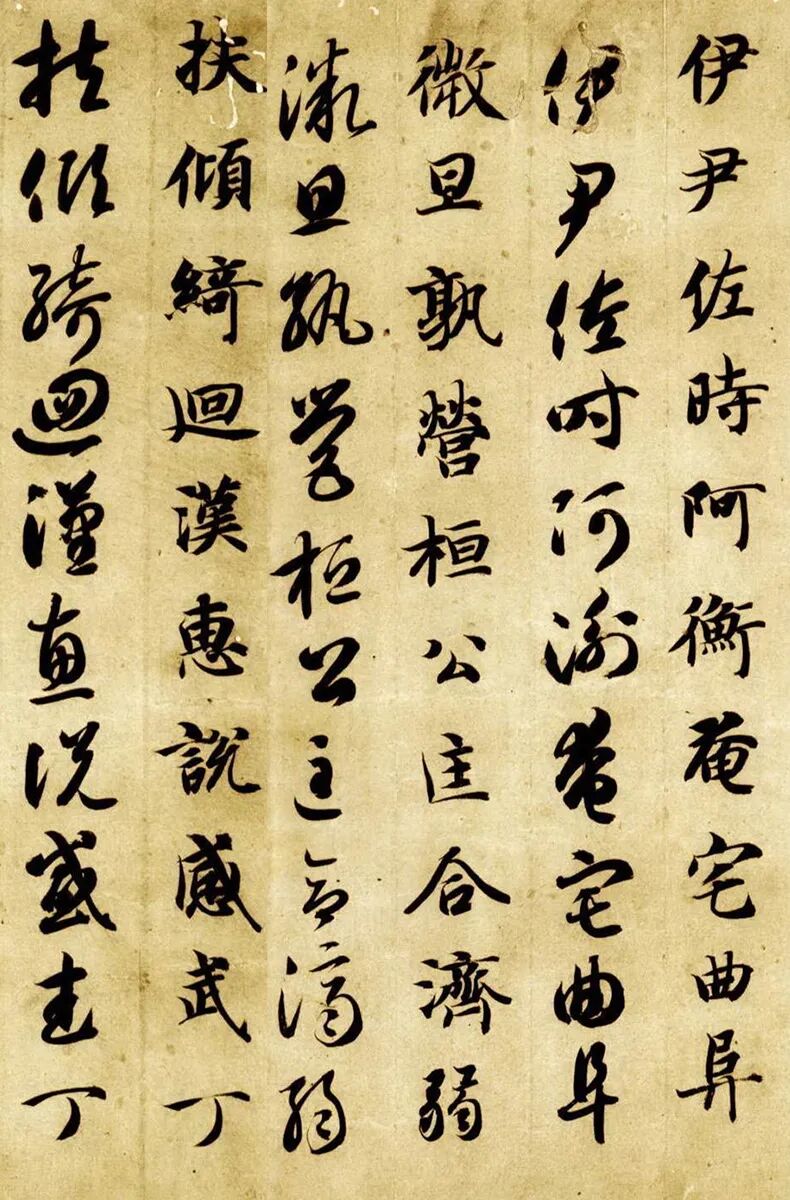 伊尹佐時阿衡奄宅曲阜
伊尹佐時阿衡奄宅曲阜
微旦孰營桓公匡合濟弱
微旦孰營桓公匡合濟弱
扶傾綺迴漢惠說感武丁
扶傾綺迴漢惠說感武丁